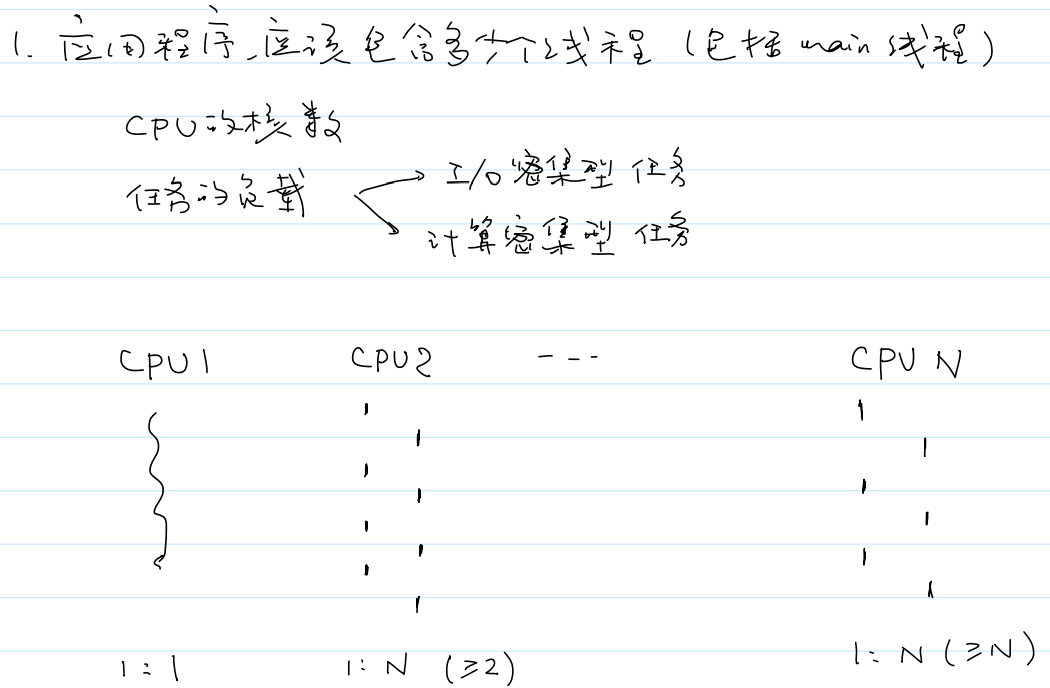 1. 应用程序,应该包含多少个线程 (包括 main 线程)
CPU的核数
任务的负载
I/O密集型 任务
计算密集型 任务
CPU1 CPU2 --- CPU N
1:1 1:N (≥2) 1:N (≥N)